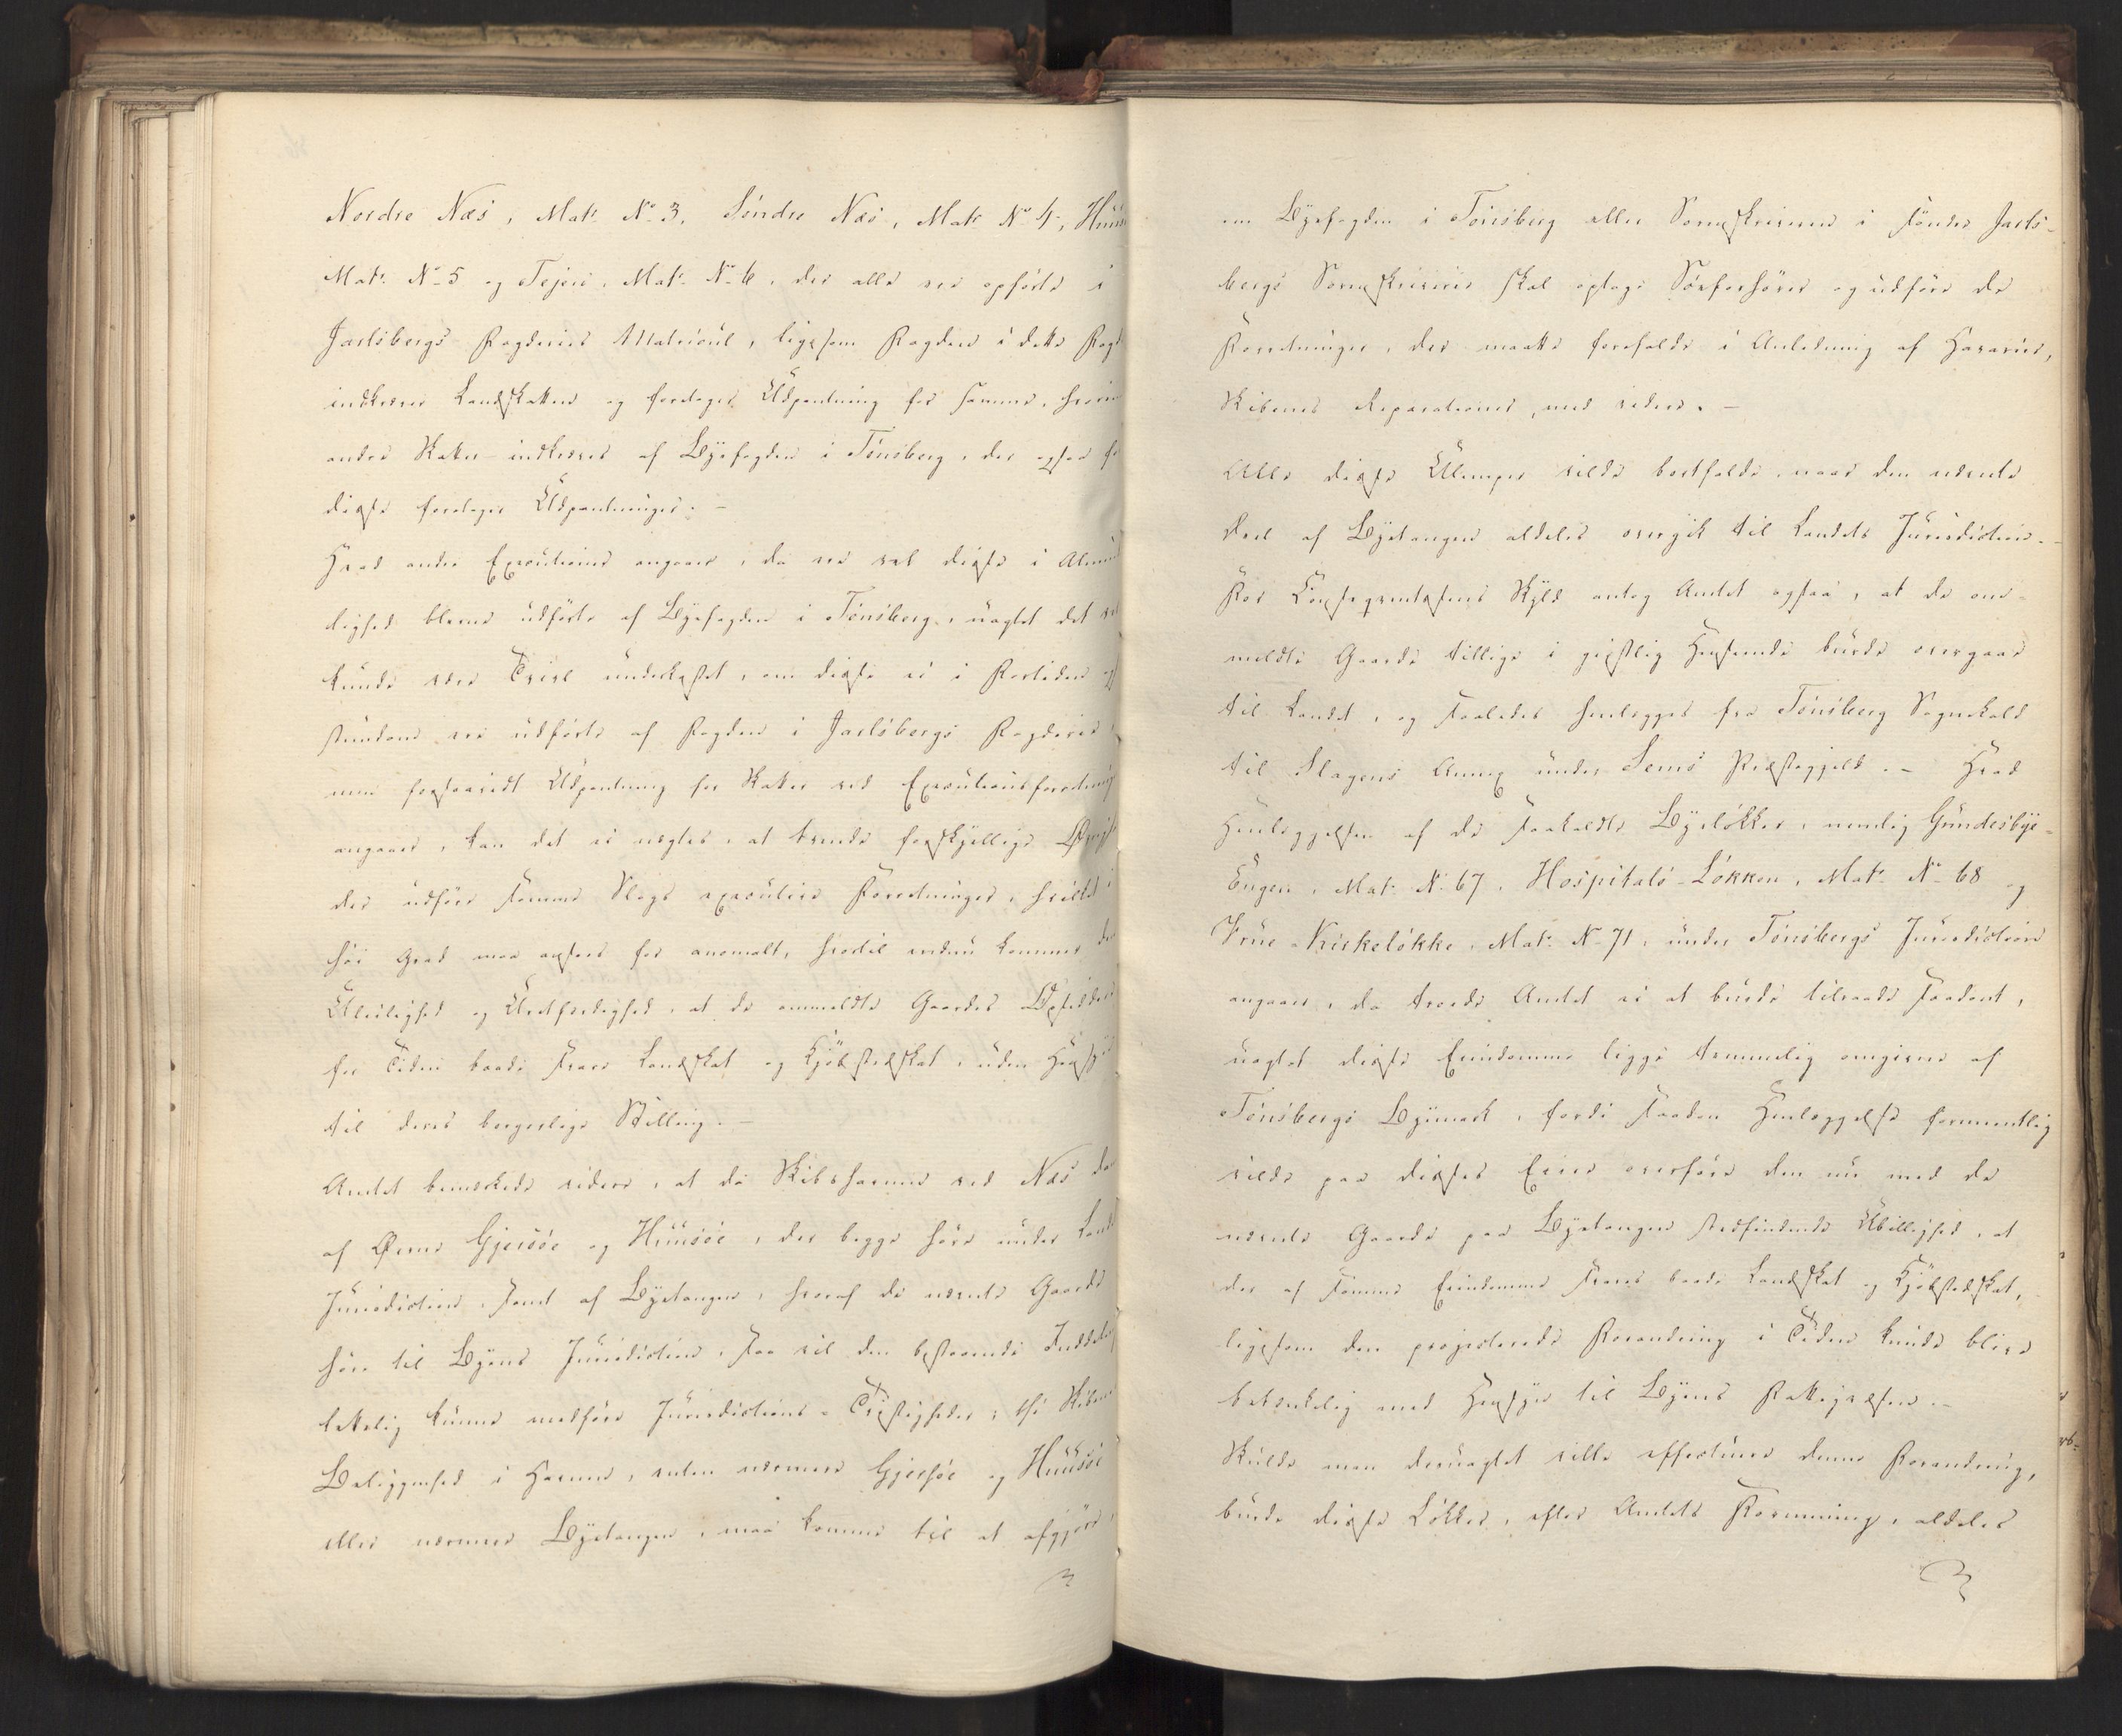 Nordre Næs, Matr. No 3, Søndre Næs, Matr. No 4, Huus
Matr. No 5 og Tejen, Matr. No 6, der alle ere opførte i
Jarlsbergs Fogderies Matricul, ligesom Fogden i dette Fogd
indkræver Landskatten og foretager Udpantning for samme, hvorim
andre Skatter indkræves af Byefogden i Tønsberg, der ogsaa for
disse foretager Udpantninger. –
Hvad andre Executioner angaaer, da ere vel disse i Almin
delighed blevne udførte af Byefogden i Tønsberg, uagtet det vel
kunde være Tvivl underkastet, om disse ei i Fortiden og
stundom ere udførte af Fogden i Jarlsbergs Fogderie,
men forsaavidt Udpantning for Skatter ved Executionsforretning
angaaer, kan det ei nægtes, at tvende forskjellige Øvrigh
der udføre samme Slags executive Forretninger, hvilket i
høi Grad maa ansees for anomalt, hvortil endnu kommer den
Ubillighed og Uretfærdighed, at de ommeldte Gaardes Opsiddere
for Tiden baade svare Landskat og Kjøbstedskat, uden Hensyn
til deres borgerlige Stilling. –
Amtet bemærkede videre, at da Skibshavnen ved Næs dan
af Øerne Gjersøe og Huusøe, der begge høre under Landets
Jurisdiction, samt af Byetangen, hvoraf de nævnte Gaarde
høre til Byens Jurisdiction, saa vil den bestaaende Inddeling
lettelig kunne medføre Jurisdictions-Tvistigheder; thi Skibenes
Beliggenhed i Havnen, enten nærmere Gjersøe og Huusøe
eller nærmere Byetangen, maa komme til at afgjøre,
om Byefogden i Tønsberg eller Sorenskriveren i søndre Jarls-
bergs Sorenskriverie skal optage Søeforhører og udføre de
Forretninger, der maatte forefalde i Anledning af Havarier,
Skibenes Reparationer, med videre. –
Alle disse Ulemper vilde bortfalde, naar den nævnte
Deel af Byetangen aldeles overgik til Landets Jurisdiction. –
For Conseqventsens Skyld antog Amtet ogsaa, at de om-
meldte Gaarde tillige i geistlig Henseende burde overgaae
til Landet, og saaledes henlægges fra Tønsberg Sognekald
til Slagens Annex under Sems Præstegjeld. – Hvad
Henlæggelsen af de saakaldte Byeløkker, nemlig Gundesbye-
Engen, Matr. No 67, Hospitals-Løkken, Matr. No 68 og
Frue-Kirkeløkke, Matr. No 71, under Tønsbergs Jurisdiction
angaaer, da troede Amtet ei at burde tilraade saadant,
uagtet disse Eiendomme ligge temmelig omgivne af
Tønsbergs Byemark, fordi saadan Henlæggelse formeentlig
vilde paa disses Eiere overføre den nu med de
nævnte Gaarde paa Byetangen stedfindende Ubillighed, at
der af samme Eiendomme svares baade Landskat og Kjøbstedskat,
ligesom den projecterede Forandring i Tiden kunde blive
betænkelig med Hensyn til Byens Fattigvæsen. –
Skulde man desuagtet ville effectuere denne Forandring,
burde disse Løkker, efter Amtets Formening, aldeles